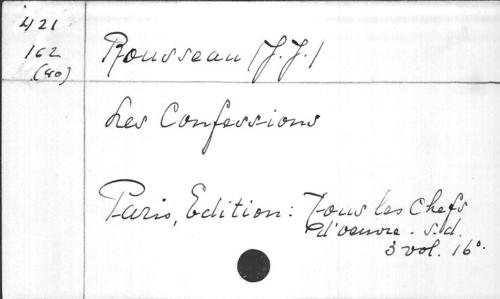 421
162
(80)
Rousseau (J.J.)
Les Confessions
Paris, Edition: Tous les Chefs
d'oeuvre. s.d.
3 vol. 16°.